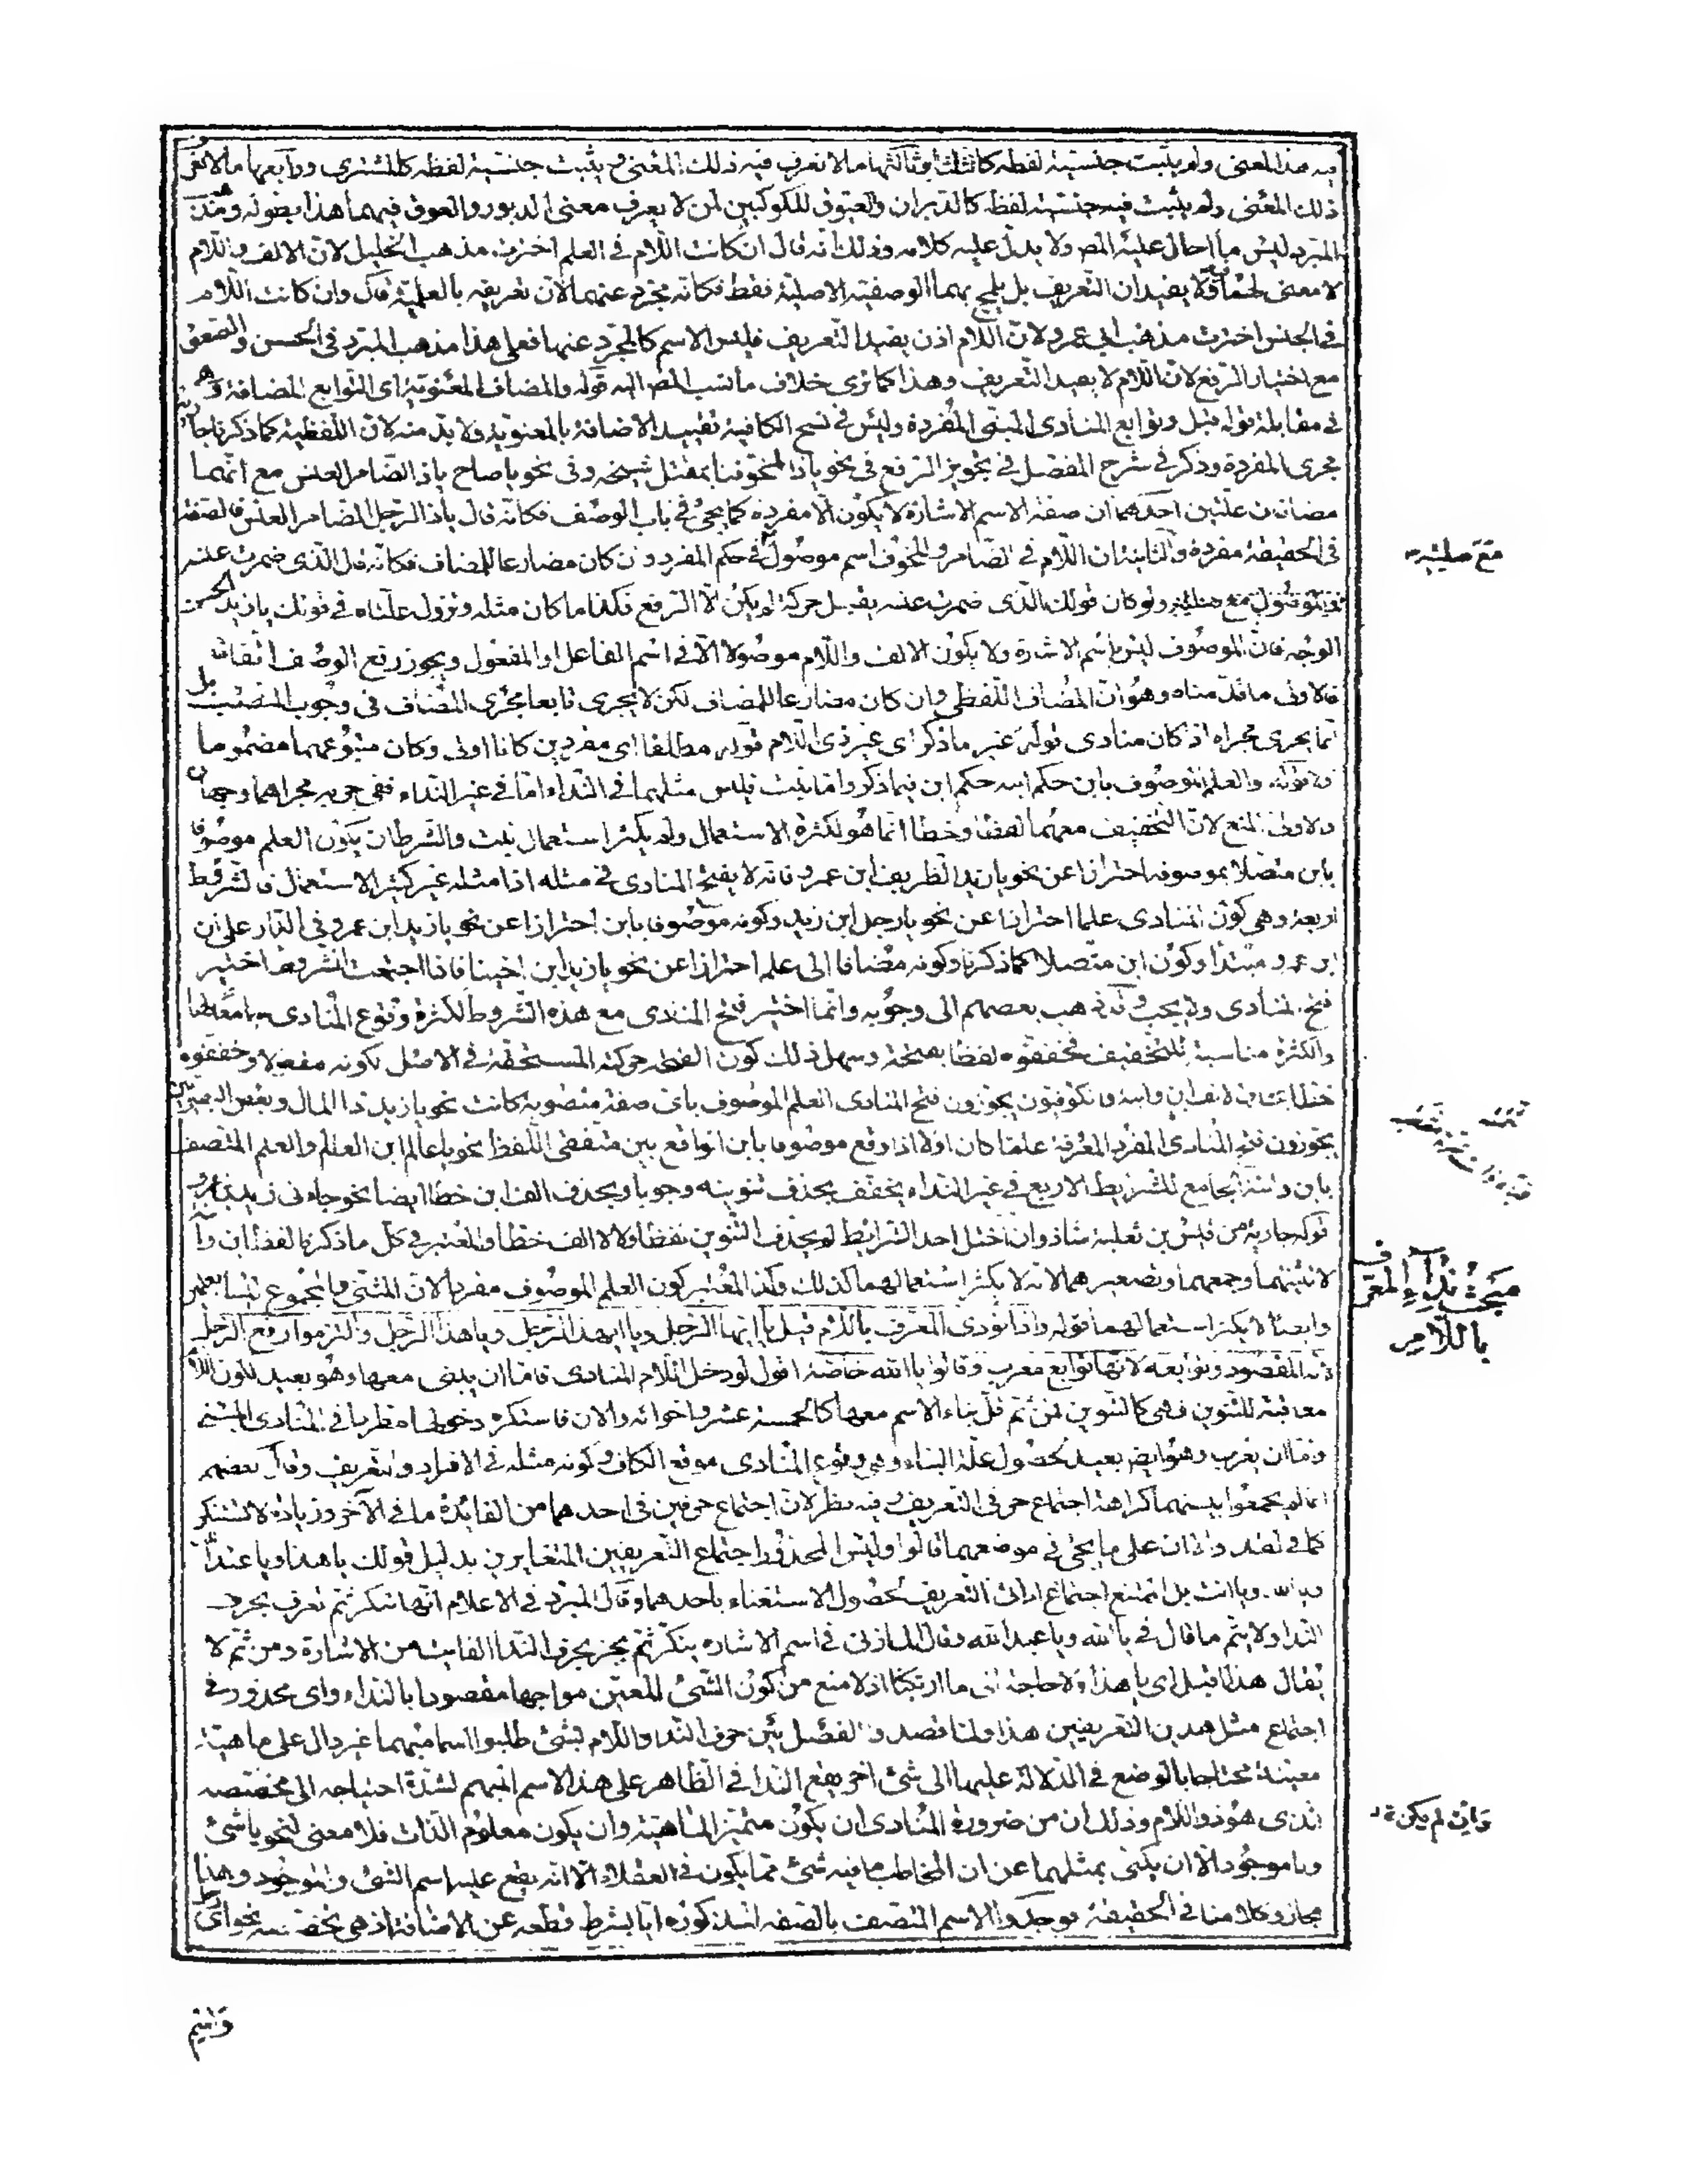 فيه هذا المعنى ولم يثبت جنسية لفظه كالثلثاء وثالثها ما لا نعرف فيه ذلك المعنى ويثبت جنسية لفظه كالمشترى ورابعها ما لا نعرف
ذلك المعنى ولم يثبت فيه جنسية لفظه كالدبران والعيوق للكوكبين لمن لا يعرف معنى الدبور والعوق فيهما هذا
المبرد ليس ما احال عليه المص ولا يدل عليه كلامه وذلك انه قال ان كانت اللام فى العلم اخترت مذهب الخليل لان الالف واللام
لا معنى لهما ولا يفيدان التعريف بل يلمح بهما الوصفية الاصلية فقط فكانه مجرد عنهما لان تعريفه بالعلمية قال وان كانت اللام
فى الجنس اخترت مذهب ابى عمرو لان اللام اذن يفيد التعريف فليس الاسم كالمجرد عنها فعلى هذا مذهب المبرد فى الحسن والصعق
مع اختيار الرفع لان اللام لا يفيد التعريف وهذا كما ترى خلاف ما نسب المص اليه قوله والمضاف المعنوية اى التوابع المضافة
فى مقابلة قوله قبل وتوابع المنادى المبنى المفردة وليس فى نسخ الكافية تقييد الاضافة بالمعنوية ولا بد منه لان اللفظية كما ذكرنا
مجرى المفردة وذكر فى شرح المفصل فى تجويز الرفع فى نحو ياذا المخوفنا بمقتل شيخه وفى نحو يا صاح ياذا الضامر العنس مع انهما
مضافان علتين احدهما ان صفة الاسم الاشارة لا يكون الا مفردة كما يجئ فى باب الوصف فكانه قال ياذا الرجل الضامر العنس فالصفة
فى الحقيقة مفردة والثانية ان اللام فى الضامر والمخوف اسم موصول فى حكم المفرد وان كان مضارعا للمضاف فكانه قال الذى ضمرت عنسه
الموصول مع صلته ولو كان قولك الذى ضمرت عنسه يقبل حركة لم يكن الا الرفع فكذا ما كان مثله وتزول علتاه فى قولك يا زيد الحسن
الوجه فان الموصوف ليس باسم الاشارة ولا يكون الالف واللام موصولا الا فى اسم الفاعل او المفعول ويجوز رفع الوصف اتفاقا
فالاولى ما قدمناه وهو ان المضاف اللفظى وان كان مضارعا للمضاف لكن لا يجرى تابعا مجرى المضاف فى وجوب النصب بل
انما يجرى مجراه اذا كان منادى قوله غير ما ذكر اى غير ذى اللام قوله مطلقا اى مفردين كانا او لا وكان متبوعهما مضموما
او لا قوله والعلم الموصوف بابن حكم ابنة حكم ابن فيما ذكر واما بنت فليس مثلهما فى النداء اما فى غير النداء ففى جريه مجراهما وجهان
والاولى المنع لان التخفيف معهما لفظا وخطا انما هو لكثرة الاستعمال ولم يكثر استعمال بنت والشرطان يكون العلم موصوفا
بابن متصلا بموصوفه احترازا عن نحو يا زيد الظريف ابن عمرو فانه لا يفتح المنادى فى مثله اذ مثله غير كثير الاستعمال فالشرائط
اربعة وهى كون المنادى علما احترازا عن نحو يا رجل ابن زيد وكونه موصوفا بابن احترازا عن نحو يا زيد ابن عمرو فى الدار على ان
ابن عمرو مبتدا وكون ابن متصلا كما ذكرنا وكونه مضافا الى علم احترازا عن نحو يا زيد ابن اخينا فاذا اجتمعت الشروط اختير
فتح المنادى ولا يجب وقد ذهب بعضهم الى وجوبه وانما اختير فتح المنادى مع هذه الشروط لكثرة وقوع المنادى جامعا لها
والكثرة مناسبة للتخفيف فخففوه لفظا بفتحة وسهل ذلك كون الفتحة حركته المستحقة فى الاصل لكونه مفعولا وخففوه
خطا بحذف الف ابن وابنة والكوفيون يجوزون فتح المنادى العلم الموصوف باى صفة منصوبة كانت نحو يا زيد ذا المال وبعض البصريين
يجوزون فتح المنادى المفرد المعرفة علما كان او لا اذا وقع موصوفا بابن الواقع بين متفقى اللفظ نحو يا عالم ابن العالم والعلم المتصف
بابن وابنة الجامع للشرائط الاربع فى غير النداء يخفف بحذف تنوينه وجوبا ويحذف الف ابن خطا ايضا نحو جاءنى زيد بن عمرو
قوله جارية من قيس بن ثعلبة شاذ وان اختل احد الشرائط لم يحذف التنوين لفظا ولا الالف خطا والمعتبر فى كل ما ذكرنا لفظ ابن وابنة
لا تثنيتهما وجمعهما وتصغيرهما لانه لا يكثر استعمالهما كذلك وكذا المعتبر كون العلم الموصوف مفردا لان المثنى والمجموع ليسا بعلم
وايضا لا يكثر استعمالهما قوله واذا نودى المعرف باللام قيل يا ايها الرجل ويا ايهذا الرجل ويا هذا الرجل والتزموا رفع الرجل
لانه المقصود وتوابعه لانها توابع معرب وقالوا يا الله خاصة اقول لو دخل اللام المنادى فاما ان يبنى معها وهو بعيد لكون اللام
معاقبة للتنوين فهى كالتنوين فمن ثم قل بناء الاسم معها كالخمسة عشر واخواته والان فاستكره دخولها مطردا فى المنادى المبنى
واما ان يعرب وهو ايضا بعيد لحصول علة البناء وهى وقوع المنادى موقع الكاف وكونه مثله فى الافراد والتعريف وقال بعضهم
انما لم يجمعوا بينهما كراهة اجتماع حرفى التعريف وفيه نظر لان اجتماع حرفين فى احدهما من الفائدة ما فى الآخر وزيادة لا يستنكر
كما فى لقد والا ان على ما يجئ فى موضعهما قالوا وليس المحذور اجتماع التعريفين المتغايرين بدليل قولك يا هذا ويا عبد الله
ويا الله ويا انت بل الممتنع اجتماع اداتى التعريف لحصول الاستغناء باحدهما وقال المبرد فى الاعلام انها تنكر ثم تعرف بحرف
النداء ولا يتم ما قال فى يا الله ويا عبد الله وقال المازنى فى اسم الاشارة ينكر ثم يجبر بحرف النداء الفايت من الاشارة ومن ثم لا
يقال هذا اقبل اى يا هذا ولا حاجة الى ما ارتكبا اذ لا منع من كون الشئ المعين مواجها مقصودا بالنداء واى محذور فى
اجتماع مثل هذين التعريفين هذا ولما قصدوا الفصل بين حرف النداء واللام بشئ طلبوا اسما مبهما غير دال على ماهية
معينة محتاجا بالوضع فى الدلالة عليها الى شئ آخر يقع النداء فى الظاهر على هذا الاسم المبهم لشدة احتياجه الى مخصصه
الذى هو ذو اللام وذلك ان من ضرورة المنادى ان يكون متميز الماهية وان يكون معلوم الذات فلا معنى لنحو يا شئ
ويا موجود الا ان يكنى بمثلهما عن ان المخاطب ما فيه شئ مما يكون فى العقلاء الا انه يقع عليه اسم الشئ والموجود وهذا
مجاز وكلامنا فى الحقيقة فوجدوا الاسم المتصف بالصفة المذكورة ايا بشرط قطعه عن الاضافة اذ هى تخصصه نحو اى
مع صلته
مبحث نداء المعرف
باللام
وان لم يكن